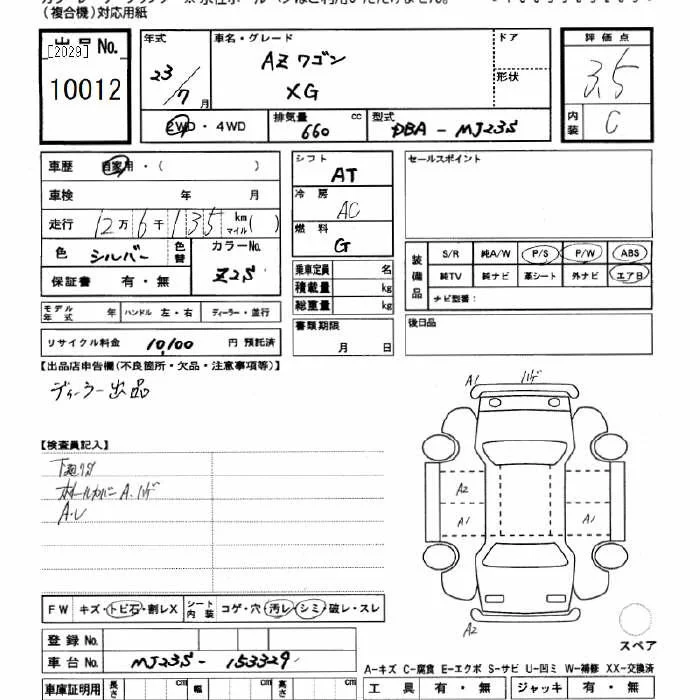 (複合機)対応用紙
出品No.
[2029]
10012
年式 車名・グレード ドア 評価点
23/7月 AZワゴン XG 形状 3.5
2WD・4WD 排気量 660 cc 型式 DBA-MJ23S 内装 C
車歴 自家用・( )
車検 年 月
走行 12万6千135 km マイル( )
色 シルバー 色替 カラーNo. Z2S
保証書 有・無
シフト AT
冷房 AC
燃料 G
乗車定員 名
積載量 kg
総重量 kg
書類期限
月 日
セールスポイント
装備品 S/R 純A/W P/S P/W ABS
純TV 純ナビ 革シート 外ナビ エアB
ナビ型番:
後日品
モデル年式 年 ハンドル 左・右 ディーラー・並行
リサイクル料金 10,100 円 預託済
【出品店申告欄(不良箇所・欠品・注意事項等)】
ディーラー出品
【検査員記入】
ホイールカバーA.ハゲ
A.U
A1 ハゲ
A2
A1 A1
A2
FW キズ・トビ石・割レX シート内装 コゲ・穴・汚レ・シミ・破レ・スレ
登録No.
車台No. MJ23S-153329
スペア
A-キズ C-腐食 E-エクボ S-サビ U-凹ミ W-補修 XX-交換済
車庫証明用 長さ cm 幅 cm 高さ cm
工具 有・無 ジャッキ 有・無